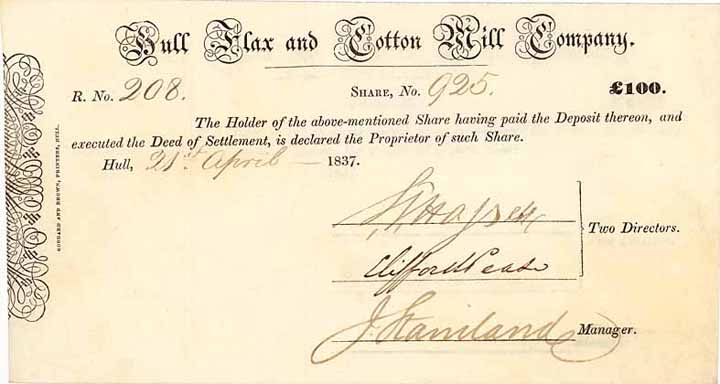 Hull Flax and Cotton Mill Company.
R. No. 208. SHARE, No. 925. £100.
The Holder of the above-mentioned Share having paid the Deposit thereon, and
executed the Deed of Settlement, is declared the Proprietor of such Share.
Hull, 21st April 1837.
Two Directors.
Clifford Pease
J. Staniland Manager.
GODDARD AND BROWN, PRINTERS, HULL.